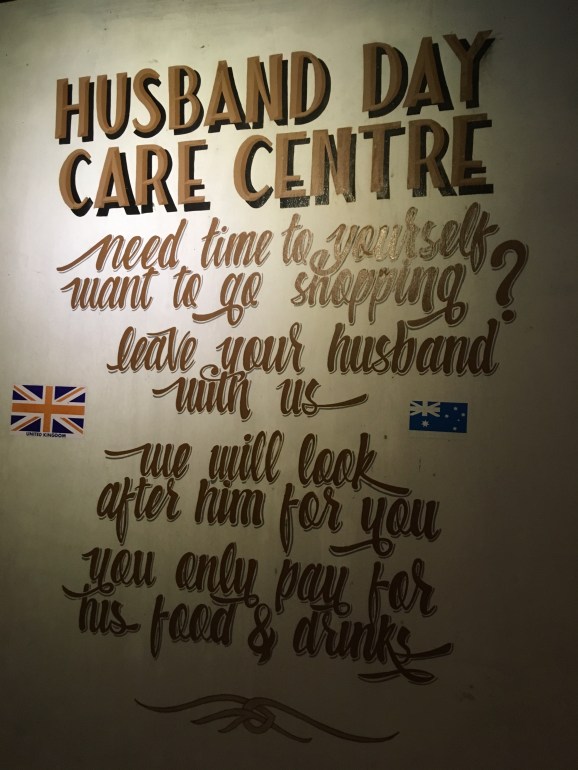 HUSBAND DAY
CARE CENTRE
need time to yourself
want to go shopping?
leave your husband
with us
UNITED KINGDOM
we will look
after him for you
you only pay for
his food & drinks